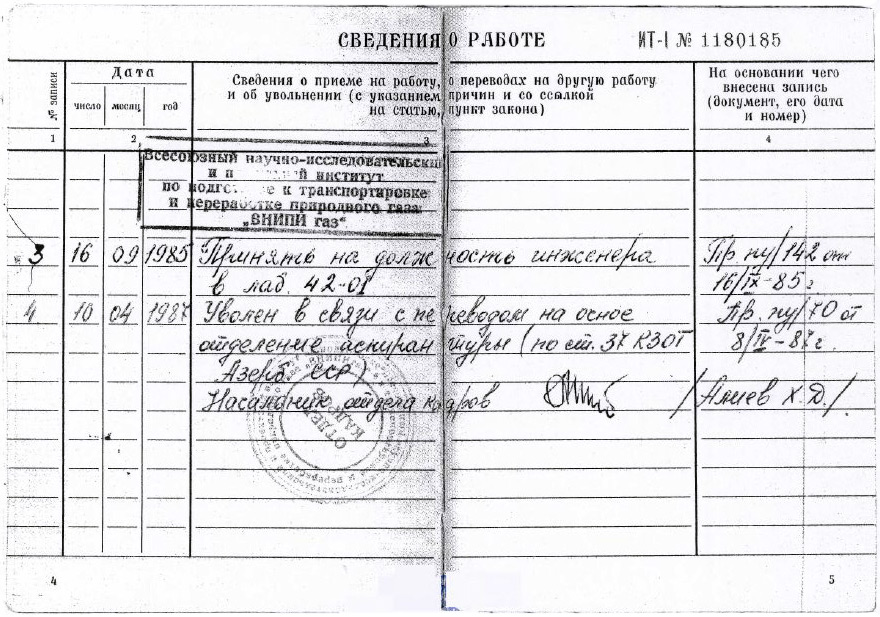 СВЕДЕНИЯ О РАБОТЕ
ИТ-I № 1180185
№ записи
Дата
число месяц год
Сведения о приеме на работу, о переводах на другую работу
и об увольнении (с указанием причин и со ссылкой
на статью, пункт закона)
На основании чего
внесена запись
(документ, его дата
и номер)
1 2 3 4
Всесоюзный научно-исследовательский
и институт
по к транспортировке
и переработке природного газа
„ВНИПИ газ“
3 16 09 1985 Принять на должность инженера Пр. пу/142 от
в лаб. 42-01 16/IX-85 г
4 10 04 1987 Уволен в связи с переводом на основе Пр. пу/70 от
отделение аспирантуры (по ст. 37 КЗОТ 8/IV-87 г.
Азерб. ССР)
Начальник отдела кадров / Алиев Х.Д./
ОТДЕЛ
КАДРОВ
4
5